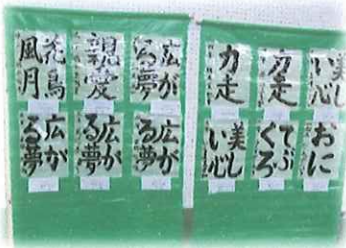 花鳥
風月
親愛
広が
る夢
広が
る夢
広が
る夢
広が
る夢
力走
力走
美し
い心
美し
い心
てぶ
くろ
おに